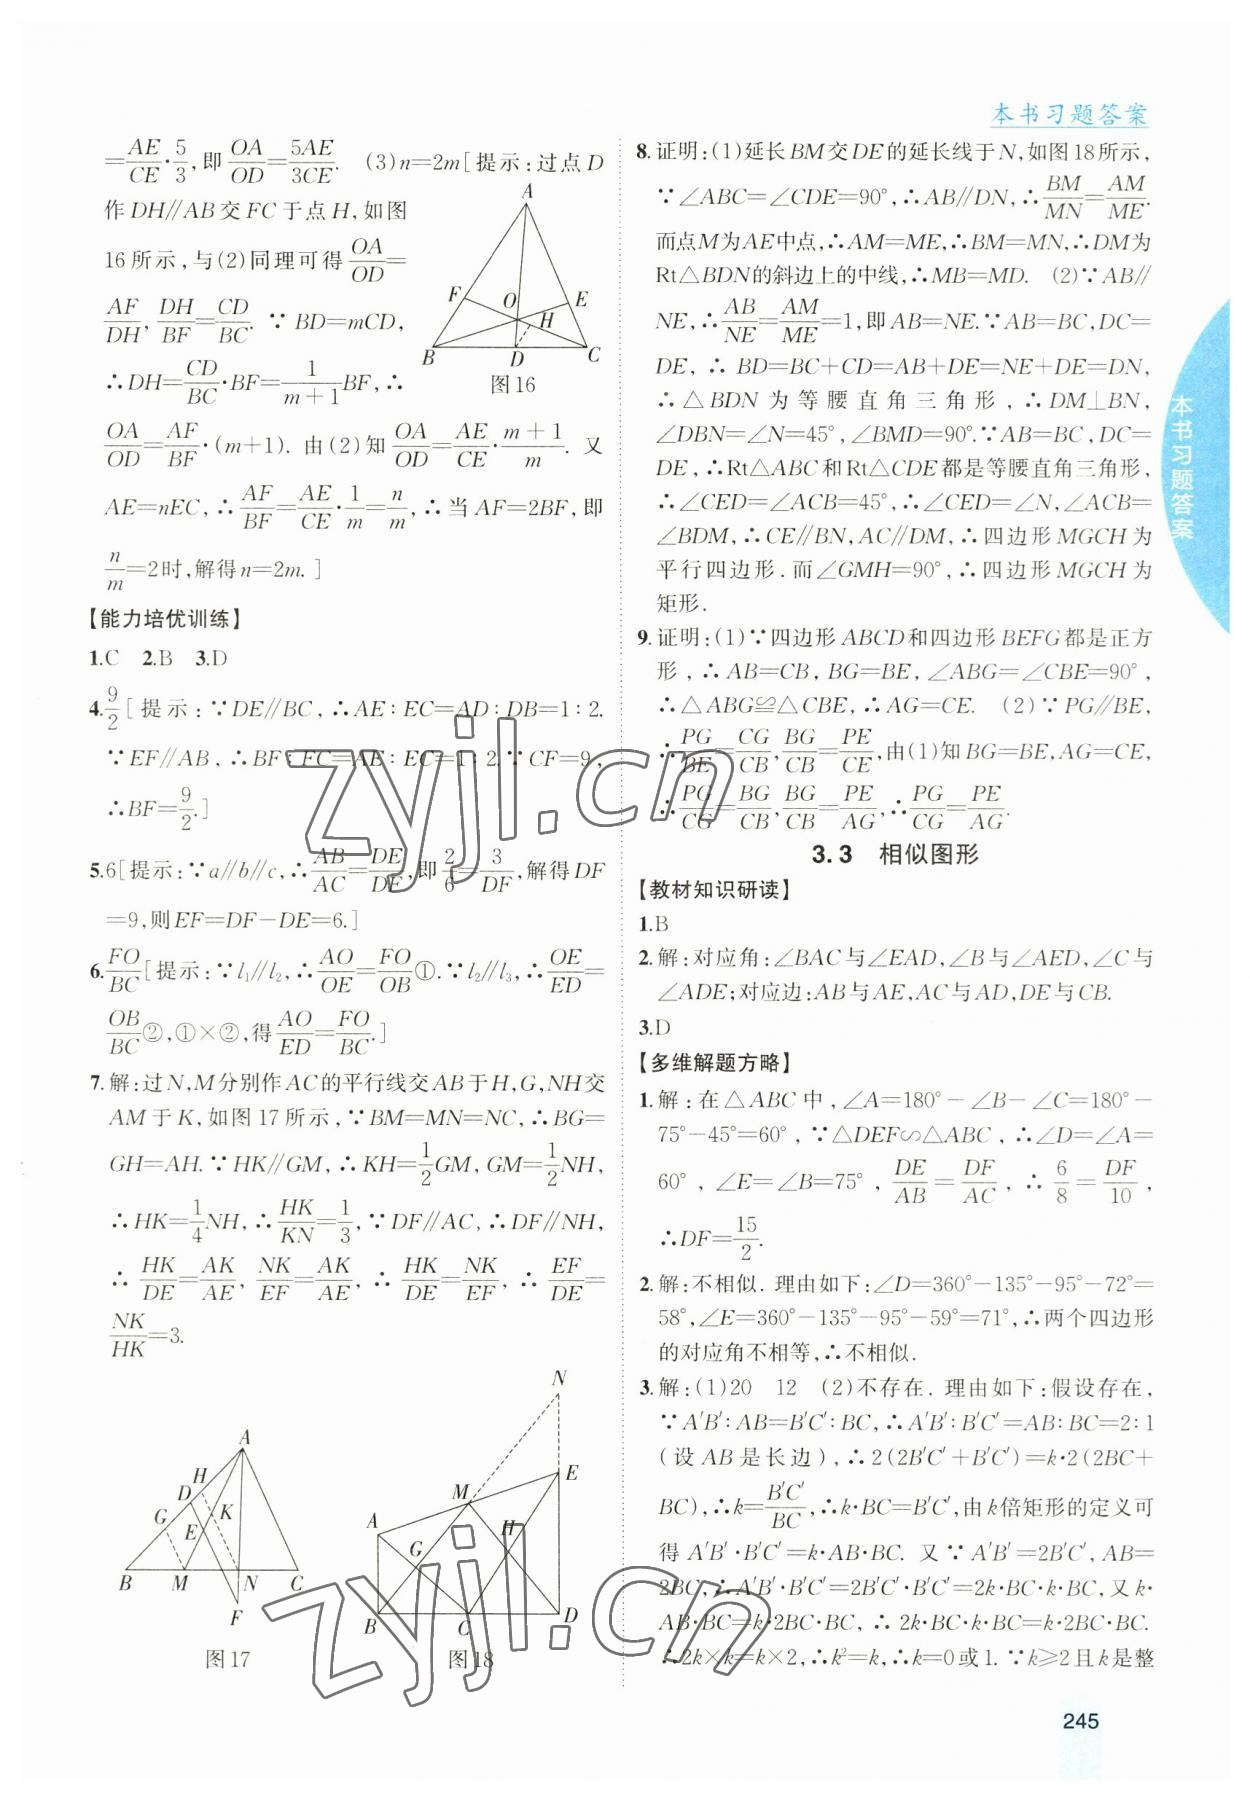 本书习题答案
=AE/CE·5/3,即OA/OD=5AE/3CE. (3)n=2m[提示:过点D
作DH∥AB交FC于点H,如图
16所示,与(2)同理可得OA/OD=
AF/DH, DH/BF=CD/BC. ∵BD=mCD,
∴DH=CD/BC·BF=1/(m+1)BF, ∴
OA/OD=AF/BF·(m+1). 由(2)知OA/OD=AE/CE·(m+1)/m. 又
AE=nEC, ∴AF/BF=AE/CE·1/m=n/m, ∴当AF=2BF,即
n/m=2时,解得n=2m.]
A
F
O
E
H
B
D
C
图16
【能力培优训练】
1.C 2.B 3.D
4.9/2[提示:∵DE∥BC,∴AE:EC=AD:DB=1:2.
∵EF∥AB,∴BF:FC=AE:EC=1:2.∵CF=9,
∴BF=9/2.]
5.6[提示:∵a∥b∥c,∴AB/AC=DE/DF,即2/6=3/DF,解得DF
=9,则EF=DF-DE=6.]
6.FO/BC[提示:∵l₁∥l₂,∴AO/OE=FO/OB①.∵l₂∥l₃,∴OE/ED=
OB/BC②,①×②,得AO/ED=FO/BC.]
7.解:过N,M分别作AC的平行线交AB于H,G,NH交
AM于K,如图17所示,∵BM=MN=NC,∴BG=
GH=AH.∵HK∥GM,∴KH=1/2GM,GM=1/2NH,
∴HK=1/4NH,∴HK/KN=1/3,∵DF∥AC,∴DF∥NH,
∴HK/DE=AK/AE, NK/EF=AK/AE, ∴HK/DE=NK/EF, ∴EF/DE=
NK/HK=3.
A
H
D
G
K
E
B
M
N
C
F
图17
N
M
E
A
G
H
B
C
D
图18
8.证明:(1)延长BM交DE的延长线于N,如图18所示,
∵∠ABC=∠CDE=90°,∴AB∥DN,∴BM/MN=AM/ME.
而点M为AE中点,∴AM=ME,∴BM=MN,∴DM为
Rt△BDN的斜边上的中线,∴MB=MD. (2)∵AB∥
NE,∴AB/NE=AM/ME=1,即AB=NE.∵AB=BC,DC=
DE,∴BD=BC+CD=AB+DE=NE+DE=DN,
∴△BDN为等腰直角三角形,∴DM⊥BN,
∠DBN=∠N=45°,∠BMD=90°.∵AB=BC,DC=
DE,∴Rt△ABC和Rt△CDE都是等腰直角三角形,
∴∠CED=∠ACB=45°,∴∠CED=∠N,∠ACB=
∠BDM,∴CE∥BN,AC∥DM,∴四边形MGCH为
平行四边形.而∠GMH=90°,∴四边形MGCH为
矩形.
9.证明:(1)∵四边形ABCD和四边形BEFG都是正方
形,∴AB=CB,BG=BE,∠ABG=∠CBE=90°,
∴△ABG≌△CBE,∴AG=CE. (2)∵PG∥BE,
∴PG/BE=CG/CB,BG/CB=PE/CE,由(1)知BG=BE,AG=CE,
∴PG/CG=BG/CB,BG/CB=PE/AG,∴PG/CG=PE/AG.
3.3 相似图形
【教材知识研读】
1.B
2.解:对应角:∠BAC与∠EAD,∠B与∠AED,∠C与
∠ADE;对应边:AB与AE,AC与AD,DE与CB.
3.D
【多维解题方略】
1.解:在△ABC中,∠A=180°-∠B-∠C=180°-
75°-45°=60°,∵△DEF∽△ABC,∴∠D=∠A=
60°,∠E=∠B=75°,DE/AB=DF/AC,∴6/8=DF/10,
∴DF=15/2.
2.解:不相似.理由如下:∠D=360°-135°-95°-72°=
58°,∠E=360°-135°-95°-59°=71°,∴两个四边形
的对应角不相等,∴不相似.
3.解:(1)20 12 (2)不存在.理由如下:假设存在,
∵A′B′:AB=B′C′:BC,∴A′B′:B′C′=AB:BC=2:1
(设AB是长边),∴2(2B′C′+B′C′)=k·2(2BC+
BC),∴k=B′C′/BC,∴k·BC=B′C′,由k倍矩形的定义可
得A′B′·B′C′=k·AB·BC. 又∵A′B′=2B′C′,AB=
2BC,∴A′B′·B′C′=2B′C′·B′C′=2k·BC·k·BC,又k·
AB·BC=k·2BC·BC,∴2k·BC·k·BC=k·2BC·BC.
∴2k×k=k×2,∴k²=k,∴k=0或1.∵k≥2且k是整
本书习题答案
245
zyjl.cn
zyjl.cn